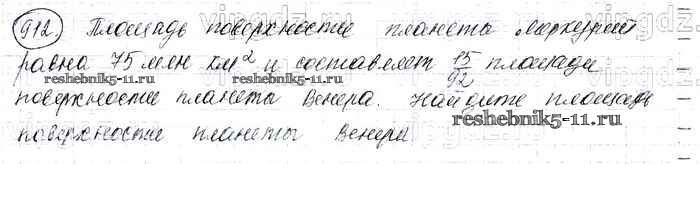 912. Площадь поверхности планеты Меркурий
равна 75 млн км² и составляет 15/92 площади
поверхности планета Венера. Найдите площадь
поверхности планеты Венери
vipgdz.com
reshebnik5-11.ru
reshebnik5-11.ru